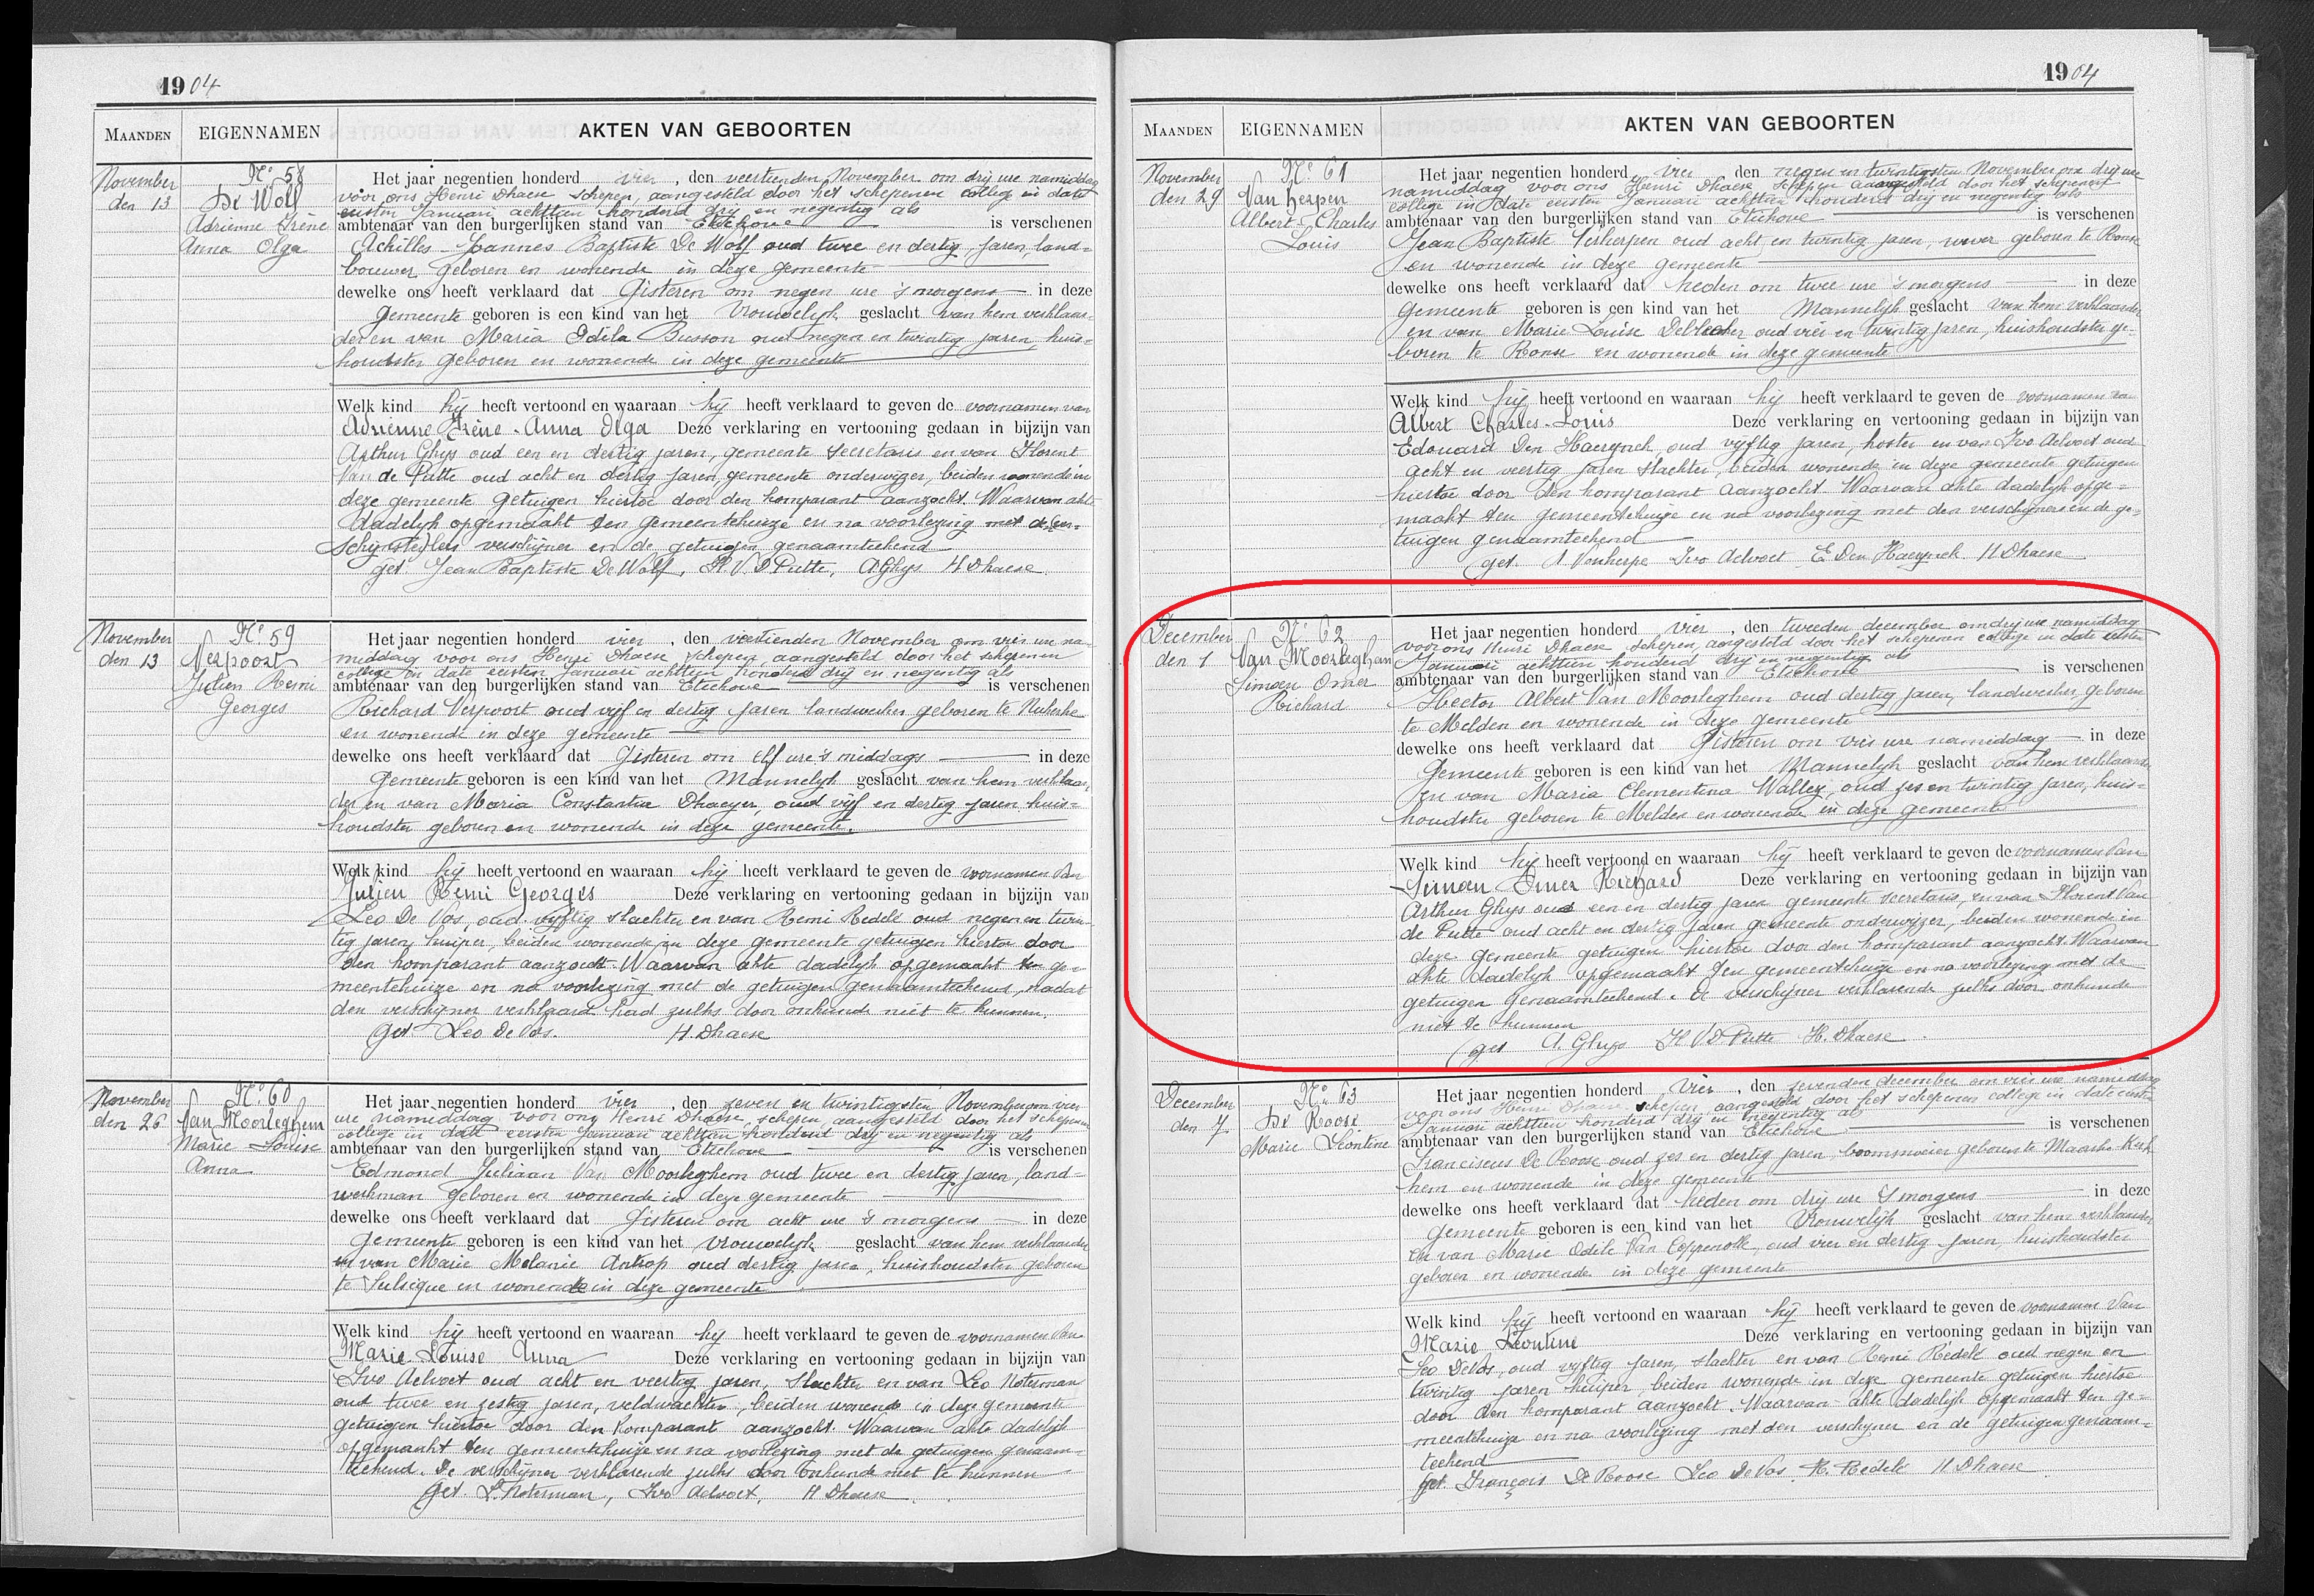 1904
MAANDEN EIGENNAMEN AKTEN VAN GEBOORTEN
November den 13
Nº 58
De Wolf
Adrienne Irène
Anna Olga
Het jaar negentien honderd vier, den veertienden November om drij ure namiddag
voor ons Henri Dhaese schepen, aangesteld door het schepenen college in date
eersten Januari achttien honderd drij en negentig als
ambtenaar van den burgerlijken stand van Etichove is verschenen
Achilles Joannes Baptiste De Wolf oud twee en dertig jaren, land-
bouwer geboren en wonende in deze gemeente
dewelke ons heeft verklaard dat Gisteren om negen ure 's morgens in deze
Gemeente geboren is een kind van het Vrouwelijk geslacht van hem verklaar-
der en van Maria Odila Busson oud negen en twintig jaren, huis-
houdster geboren en wonende in deze gemeente
Welk kind hij heeft vertoond en waaraan hij heeft verklaard te geven de voornamen van
Adrienne Irène-Anna Olga Deze verklaring en vertooning gedaan in bijzijn van
Arthur Ghys oud een en dertig jaren, gemeente secretaris en van Florent
Van de Putte oud acht en dertig jaren gemeente onderwijzer, beiden wonende in
deze gemeente getuigen hiertoe door den komparant aanzocht. Waarvan akte
dadelijk opgemaakt ten gemeentehuize en na voorlezing met de
verschijner en de getuigen genaamteekend
get Jean Baptiste De Wolf, Fl. V. D Putte, A Ghys H Dhaese
November den 13
Nº 59
Verpoort
Julien Remi
Georges
Het jaar negentien honderd vier, den veertienden November om vier ure na-
middag voor ons Henri Dhaese schepen, aangesteld door het schepenen
college in date eersten Januari achttien honderd drij en negentig als
ambtenaar van den burgerlijken stand van Etichove is verschenen
Richard Verpoort oud vijf en dertig jaren landwerker geboren te Nukerke
en wonende in deze gemeente
dewelke ons heeft verklaard dat Gisteren om elf ure 's middags in deze
Gemeente geboren is een kind van het Mannelijk geslacht van hem verklaar-
der en van Maria Constantia Dhaeyer, oud vijf en dertig jaren huis-
houdster geboren en wonende in deze gemeente.
Welk kind hij heeft vertoond en waaraan hij heeft verklaard te geven de voornamen van
Julien Remi Georges Deze verklaring en vertooning gedaan in bijzijn van
Leo De Vos, oud vijftig slachter en van Remi Redelé oud negen en twin-
tig jaren, kuiper, beiden wonende in deze gemeente getuigen hiertoe door
den komparant aanzocht. Waarvan akte dadelijk opgemaakt ten ge-
meentehuize en na voorlezing met de getuigen genaamteekend, nadat
den verschijner verklaard had zulks door onkunde niet te kunnen.
Get Leo De Vos. H. Dhaese
November den 26
Nº 60
Van Moorleghem
Marie Louise
Anna
Het jaar negentien honderd vier, den zeven en twintigsten November om vier
ure namiddag voor ons Henri Dhaese, schepen, aangesteld door het schepenen
college in date eersten Januari achttien honderd drij en negentig als
ambtenaar van den burgerlijken stand van Etichove is verschenen
Edmond Juliaan Van Moorleghem oud twee en dertig jaren, land-
werkman geboren en wonende in deze gemeente
dewelke ons heeft verklaard dat Gisteren om acht ure 's morgens in deze
gemeente geboren is een kind van het vrouwelijk geslacht van hem verklaarder
en van Marie Melanie Antrop oud dertig jaren, huishoudster geboren
te Sulsique en wonende in deze gemeente
Welk kind hij heeft vertoond en waaraan hij heeft verklaard te geven de voornamen van
Marie Louise Anna Deze verklaring en vertooning gedaan in bijzijn van
Ivo Aelvoet oud acht en veertig jaren, slachter en van Leo Noterman
oud twee en zestig jaren, veldwachter, beiden wonende in deze gemeente
getuigen hiertoe door den komparant aanzocht. Waarvan akte dadelijk
opgemaakt ten gemeentehuize en na voorlezing met de getuigen genaam-
teekend. De verschijner verklarende zulks door onkunde niet te kunnen
Get. L. Noterman, Ivo Aelvoet, H Dhaese
1904
MAANDEN EIGENNAMEN AKTEN VAN GEBOORTEN
November den 29
Nº 61
Van herpen
Albert-Charles
Louis
Het jaar negentien honderd vier den negen en twintigsten November om drij ure
namiddag voor ons Henri Dhaese schepen aangesteld door het schepenen
college in date eersten Januari achttien honderd drij en negentig als
ambtenaar van den burgerlijken stand van Etichove is verschenen
Jean Baptiste Verherpen oud acht en twintig jaren, wever geboren te Ronse
en wonende in deze gemeente
dewelke ons heeft verklaard dat heden om twee ure 's morgens in deze
Gemeente geboren is een kind van het Mannelijk geslacht van hem verklaarder
en van Marie Louise oud vier en twintig jaren, huishoudster ge-
boren te Ronse en wonende in deze gemeente
Welk kind hij heeft vertoond en waaraan hij heeft verklaard te geven de voornamen van
Albert Charles-Louis Deze verklaring en vertooning gedaan in bijzijn van
Edouard Den Haerynck oud vijftig jaren, koster en van Ivo Aelvoet oud
acht en veertig jaren slachter, beiden wonende in deze gemeente getuigen
hiertoe door den komparant aanzocht. Waarvan akte dadelijk opge-
maakt ten gemeentehuize en na voorlezing met den verschijner en de ge-
tuigen genaamteekend
get. A Vanherpe Ivo Aelvoet E Den Haerynck H Dhaese
December den 1
Nº 62
Van Moorleghem
Simoen Omer
Richard
Het jaar negentien honderd vier, den tweeden december om drij ure namiddag
voor ons Henri Dhaese, schepen, aangesteld door het schepenen college in date eersten
Januari achttien honderd drij en negentig als
ambtenaar van den burgerlijken stand van Etichove is verschenen
Hector Albert Van Moorleghem oud dertig jaren, landwerker, geboren
te Melden en wonende in deze gemeente
dewelke ons heeft verklaard dat Gisteren om vier ure namiddag in deze
Gemeente geboren is een kind van het Mannelijk geslacht van hem verklaarder
en van Maria Clementina Walley, oud zes en twintig jaren, huis-
houdster geboren te Melden en wonende in deze gemeente
Welk kind hij heeft vertoond en waaraan hij heeft verklaard te geven de voornamen van
Simoen Omer Richard Deze verklaring en vertooning gedaan in bijzijn van
Arthur Ghys oud een en dertig jaren gemeente secretaris, en van Florent Van
de Putte oud acht en dertig jaren gemeente onderwijzer, beiden wonende in
deze gemeente getuigen hiertoe door den komparant aanzocht. Waarvan
akte dadelijk opgemaakt ten gemeentehuize en na voorlezing met de
getuigen genaamteekend. De verschijner verklarende zulks door onkunde
niet te kunnen
get A. Ghys Fl V D Putte H. Dhaese
December den 7
Nº 63
De Roose
Marie Leontine
Het jaar negentien honderd vier, den zevenden december om vier ure namiddag
voor ons Henri Dhaese schepen aangesteld door het schepenen college in date eersten
Januari achttien honderd drij en negentig als
ambtenaar van den burgerlijken stand van Etichove is verschenen
Franciscus De Roose oud zes en dertig jaren, boomsnoeier geboren te Maarke Kerk
hem en wonende in deze gemeente
dewelke ons heeft verklaard dat heden om drij ure 's morgens in deze
gemeente geboren is een kind van het Vrouwelijk geslacht van hem verklaarder
en van Marie Odile Van Coppenolle, oud vier en dertig jaren, huishoudster
geboren en wonende in deze gemeente
Welk kind hij heeft vertoond en waaraan hij heeft verklaard te geven de voornamen van
Marie Leontine Deze verklaring en vertooning gedaan in bijzijn van
Leo DeVos, oud vijftig jaren, slachter en van Remi Redelé oud negen en
twintig jaren kuiper, beiden wonende in deze gemeente getuigen hiertoe
door den komparant aanzocht. Waarvan akte dadelijk opgemaakt ten ge-
meentehuize en na voorlezing met den verschijner en de getuigen genaam-
teekend
get. François De Roose Leo De Vos R. Redelé H Dhaese